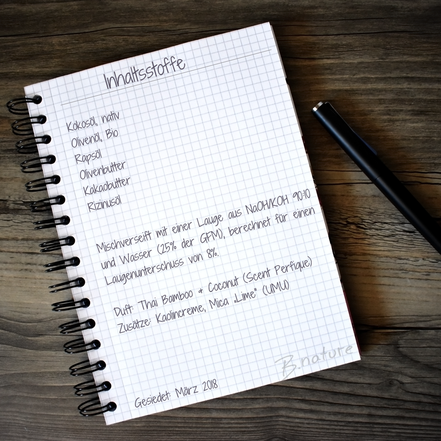 Inhaltsstoffe
Kokosöl, nativ
Olivenöl, Bio
Rapsöl
Olivenbutter
Kakaobutter
Rizinusöl
Mischverseift mit einer Lauge aus NaOH/KOH 90:10
und Wasser (25% der GFM), berechnet für einen
Laugenunterschuss von 8%.
Duft: Thai Bamboo + Coconut (Scent Perfique)
Zusätze: Kaolincreme, Mica „Lime" (UMU)
B.nature
Gesiedet: März 2018